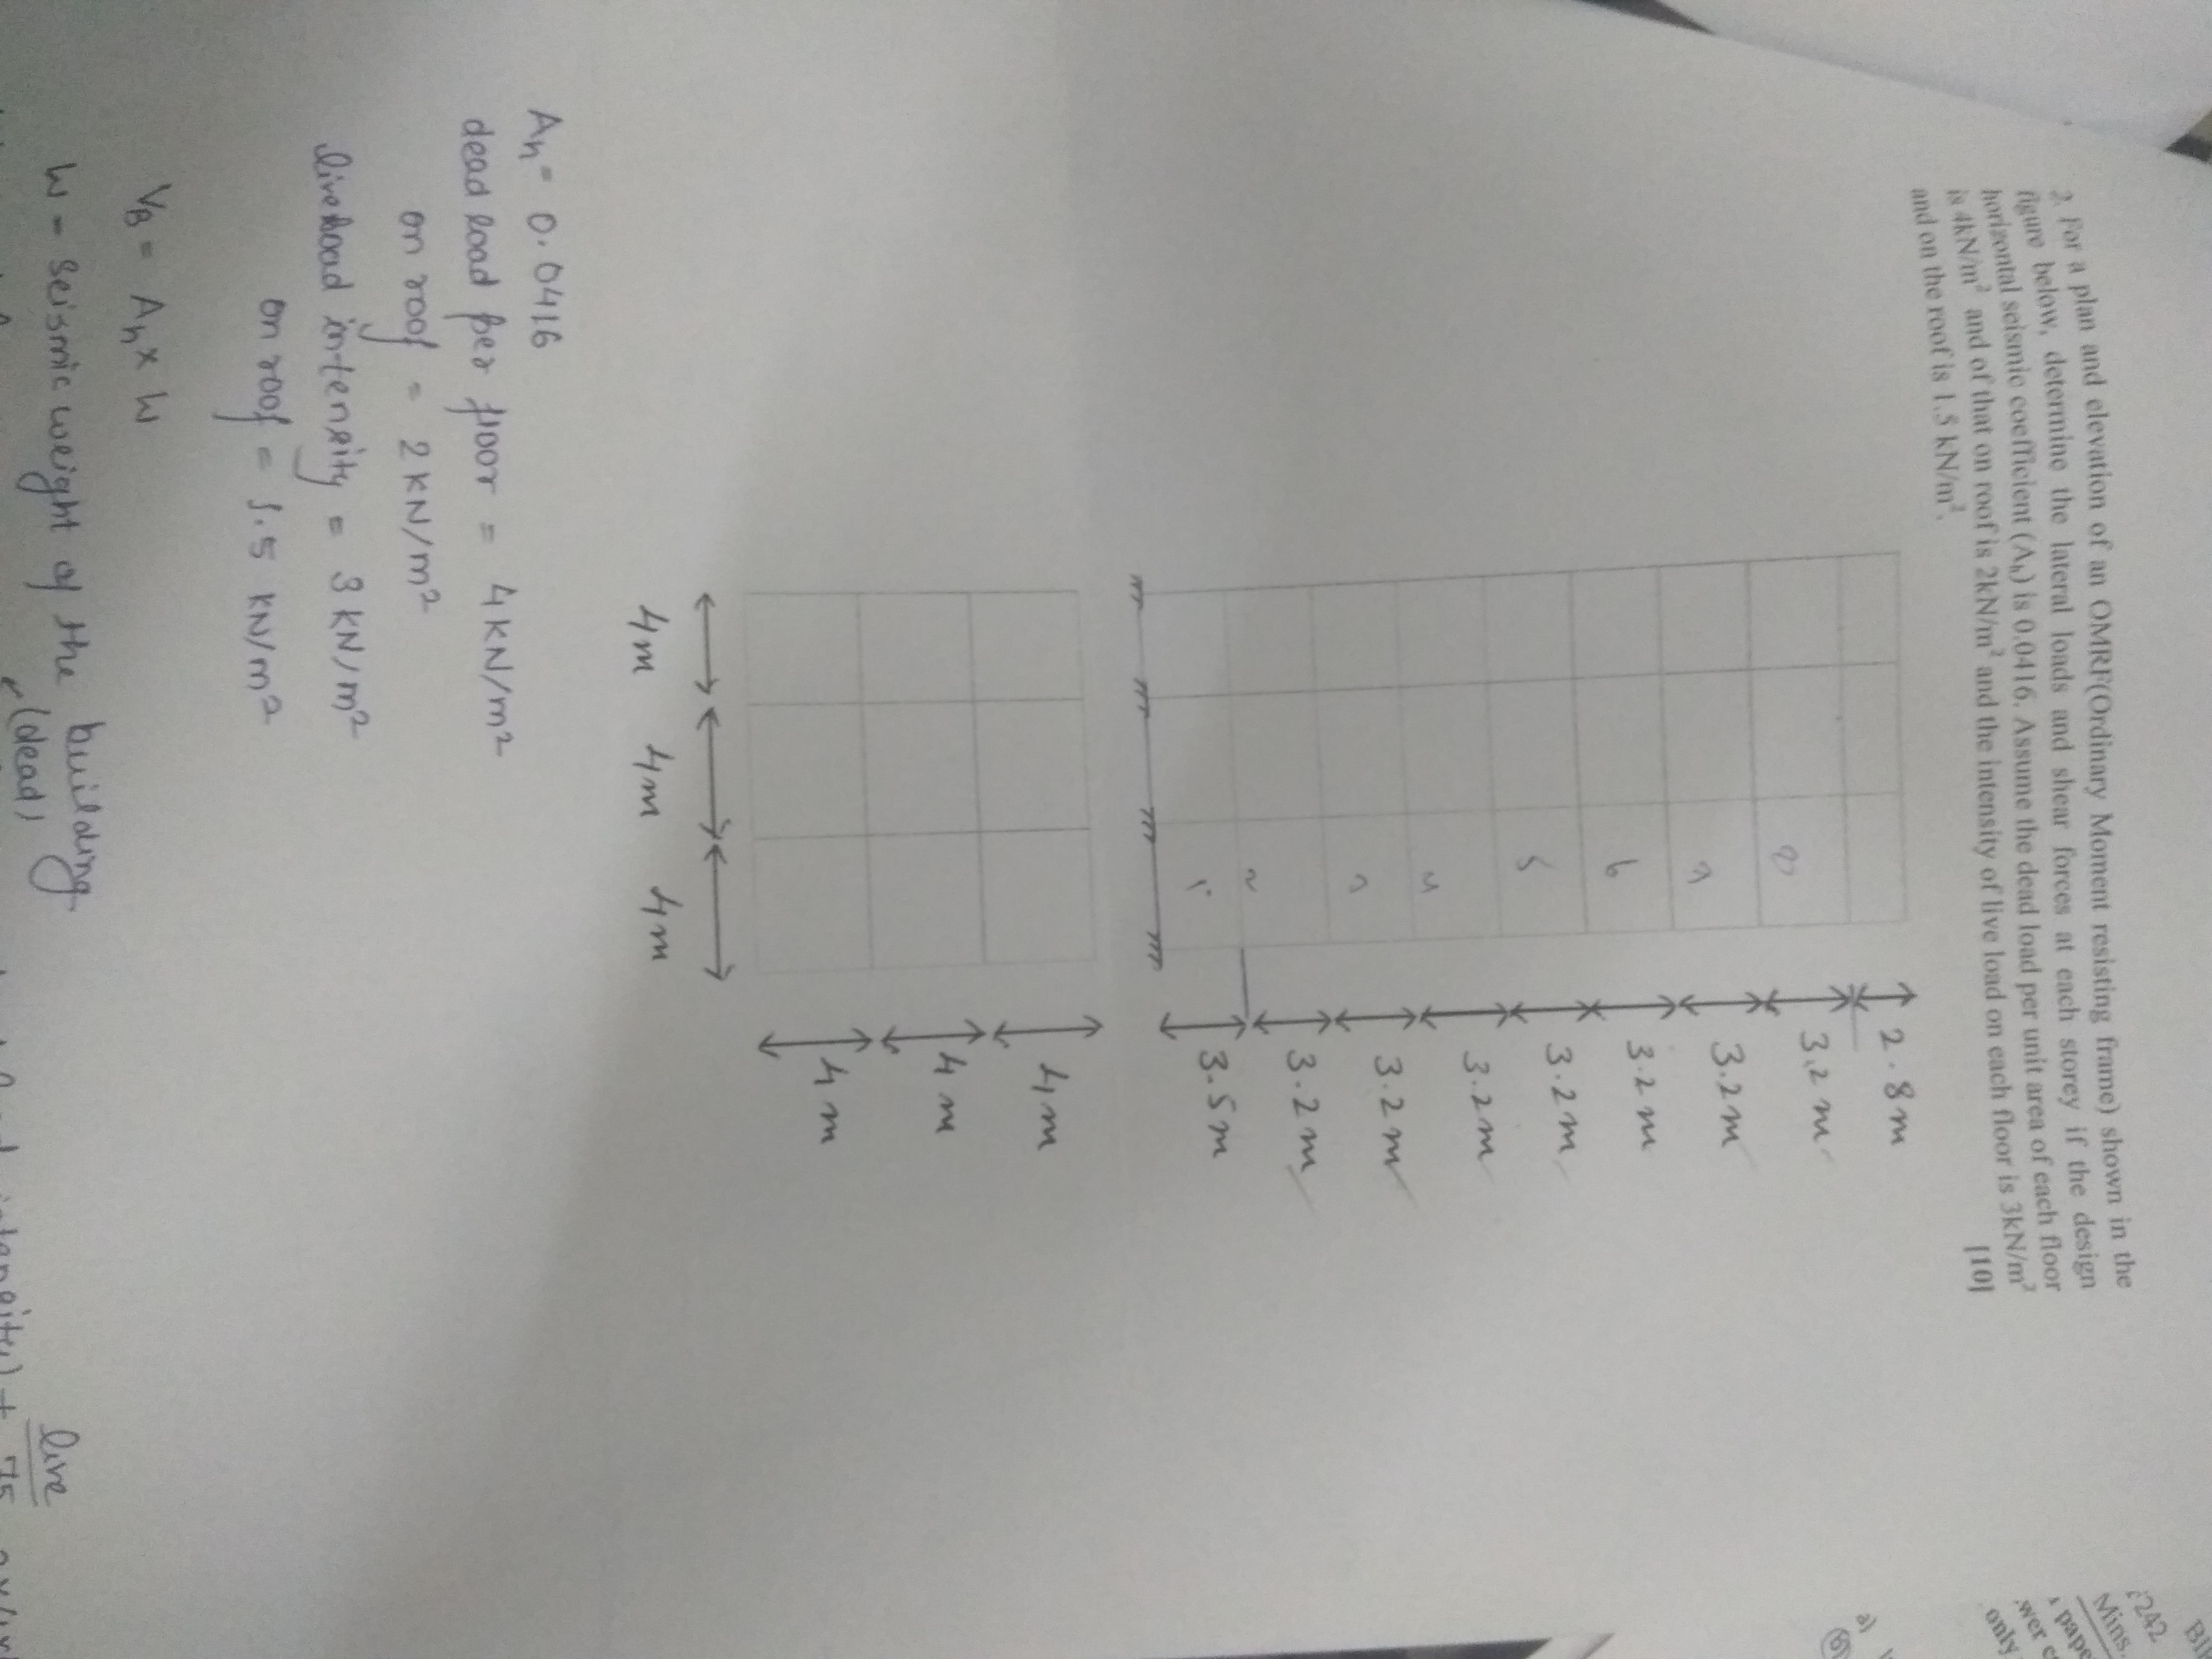 2. For a plan and elevation of an OMRF(Ordinary Moment resisting frame) shown in the
figure below, determine the lateral loads and shear forces at each storey if the design
horizontal seismic coefficient (Ah) is 0.0416. Assume the dead load per unit area of each floor
is 4kN/m² and of that on roof is 2kN/m² and the intensity of live load on each floor is 3kN/m²
and on the roof is 1.5 kN/m².
[10]
2.8m
3.2m
3.2m
3.2m
3.2m
3.2m
3.2m
3.2m
3.5m
8
6
5
2
1
4m
4m
4m
4m 4m 4m
Ah = 0.0416
dead load per floor = 4KN/m²
on roof = 2KN/m²
live load intensity = 3KN/m²
on roof = 1.5 KN/m²
VB = Ah × W
W = seismic weight of the building.
(dead)
live
242
Mins.
only
a)